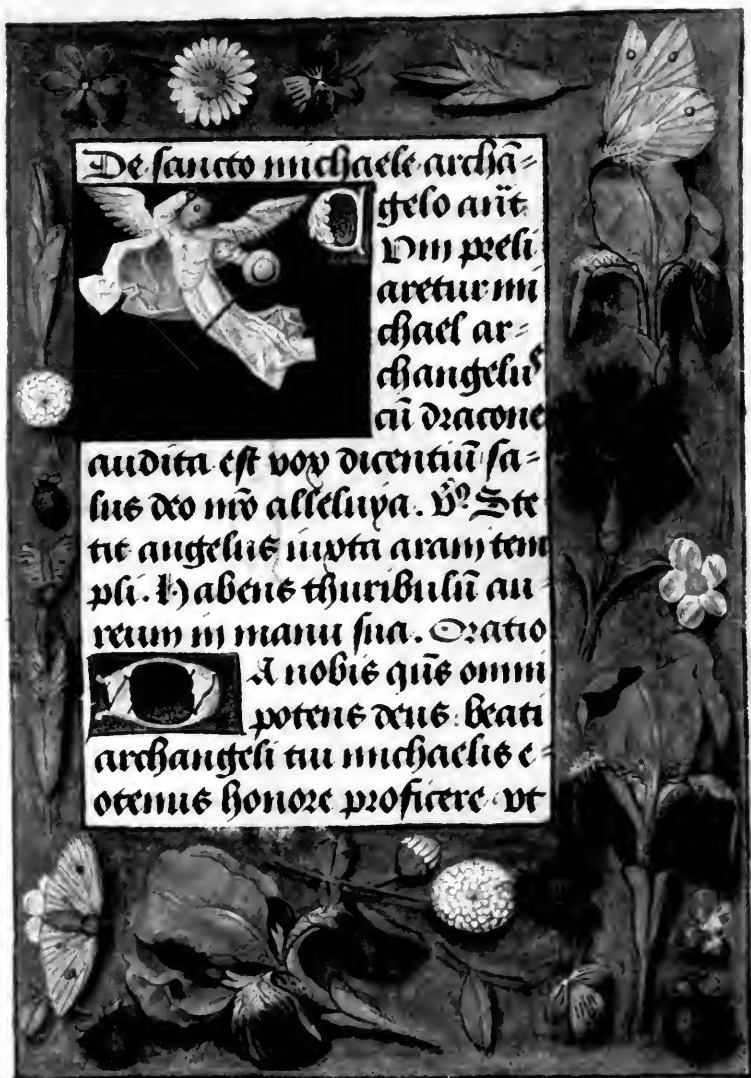 De sancto michaele archā=
gelo añt
C
vm preli
aretur mi
chael ar=
changelus
cū dracone
audita est vox dicentiū sa=
lus deo nr̄o alleluya. V̊. Ste
tit angelus iuxta aram tem
pli. Habens thuribulū au
reum in manu sua. Oratio
D
A nobis qūs omni
potens deus: beati
archangeli tui michaelis e=
otenus honore proficere vt